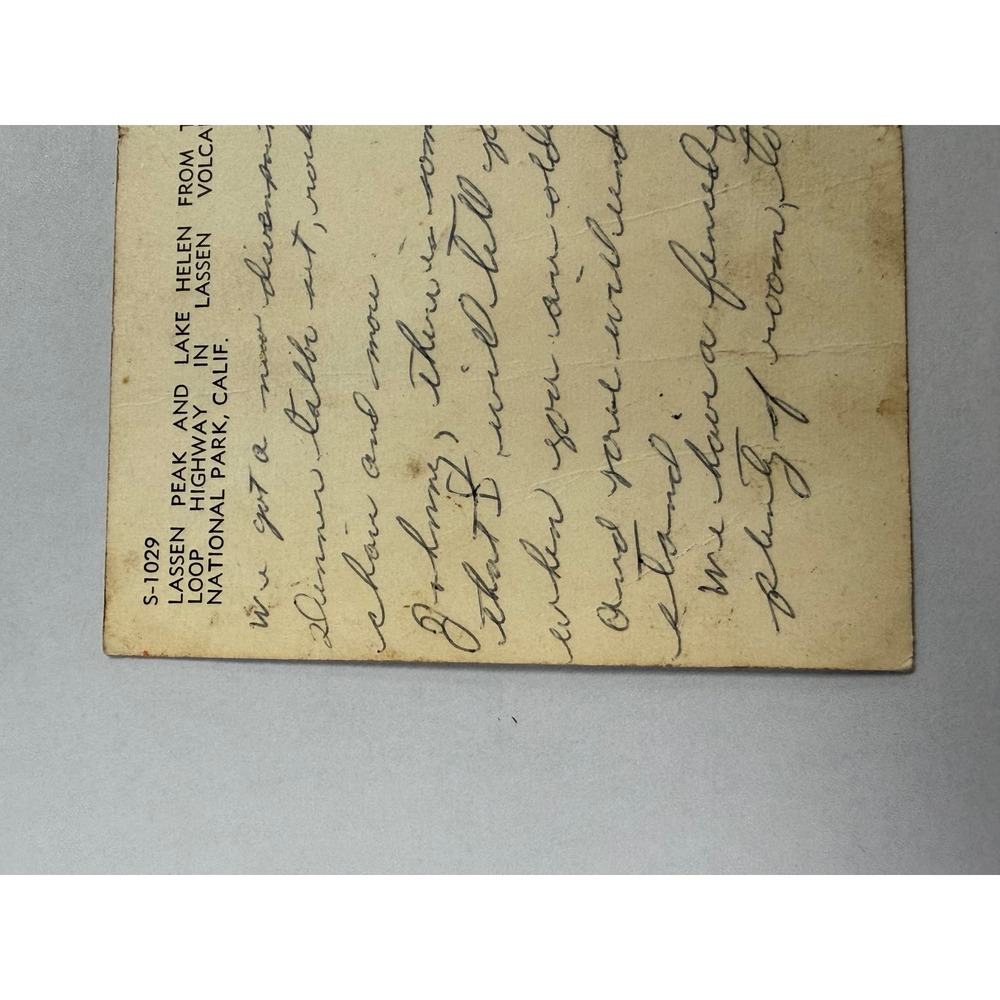 S-1029
LASSEN PEAK AND LAKE HELEN FROM T
LOOP HIGHWAY IN LASSEN VOLCA
NATIONAL PARK, CALIF.
We got a new
Dinner table set, rock
chair and more
Johnny, there is som
that I will tell yo
when you are olde
and you will und
stand.
We have a
plenty of room, to